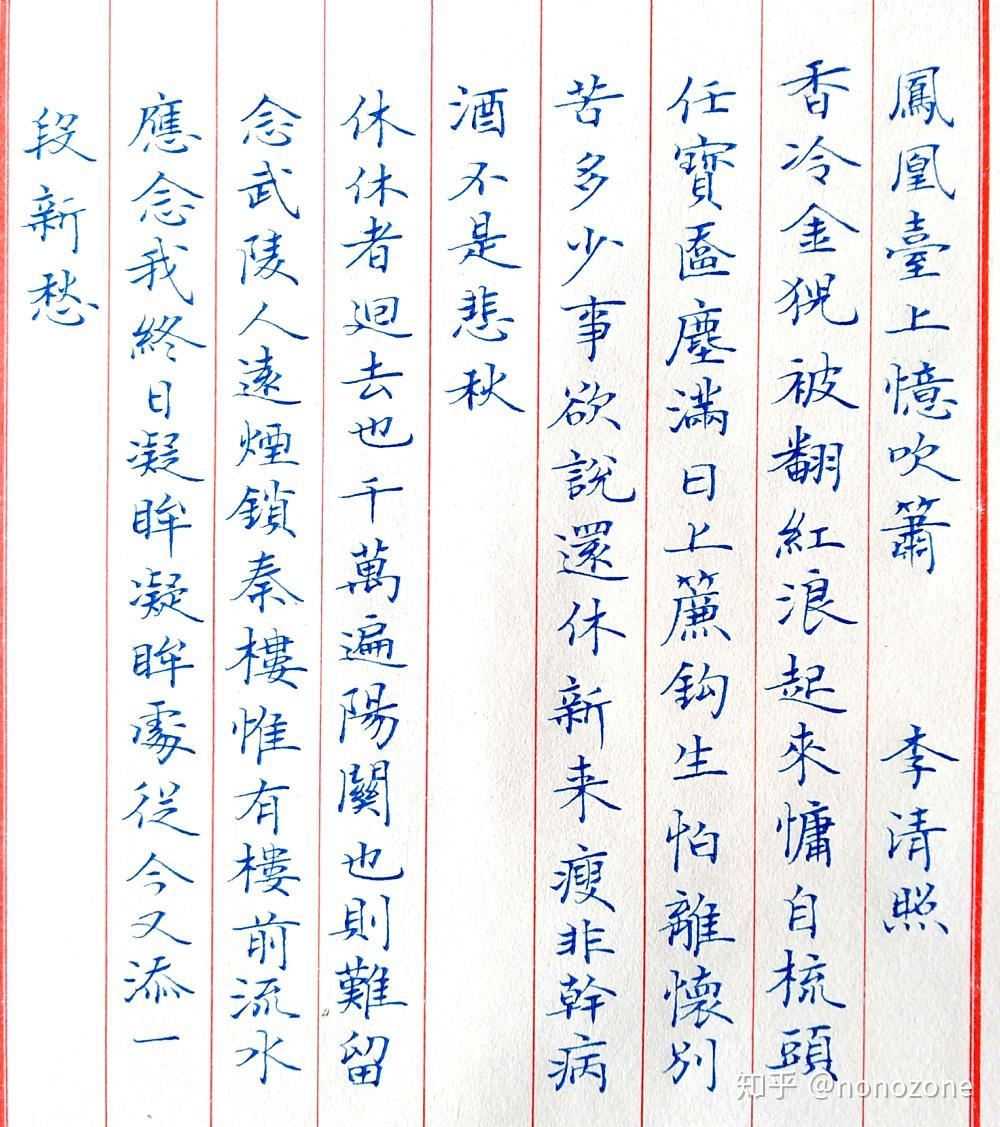 鳳凰臺上憶吹簫 李清照
香冷金猊被翻紅浪起來慵自梳頭
任寶匳塵滿日上簾鈎生怕離懷別
苦多少事欲說還休新来瘦非幹病
酒不是悲秋
休休者迴去也千萬遍陽關也則難留
念武陵人遠煙鎖秦樓惟有樓前流水
應念我終日凝眸凝眸處從今又添一
段新愁
知乎 @nonozone